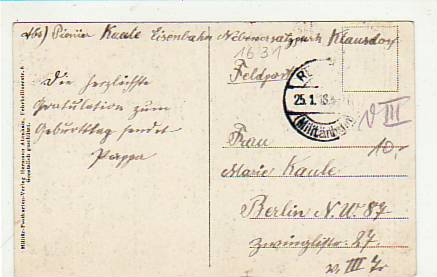 Abs) Pionier Kaule Eisenbahn Nebenersatzpark Klausdorf
1631
Feldpost
25.1.18.
(Militärbahn)
V III
10,-
Die herzlichste
Gratulation zum
Geburtstag sendet
Pappa
Frau
Marie Kaule
Berlin N.W. 87
Zwinglistr. 27
v. III Tr